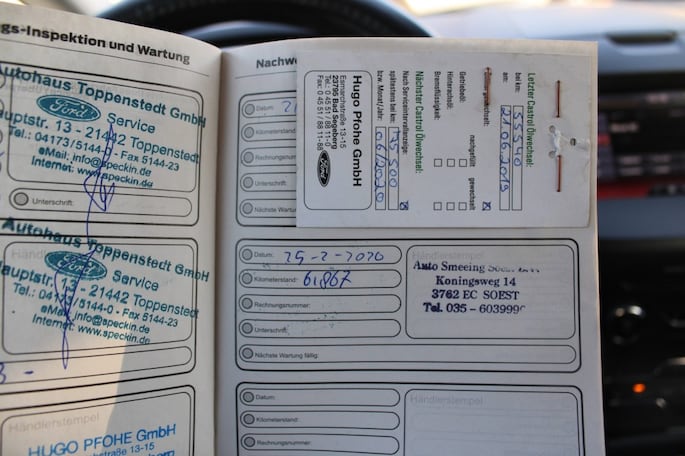 gs-Inspektion und Wartung
Autohaus Toppenstedt GmbH
Ford
Service
auptstr. 13 - 21442 Toppenstedt
Tel.: 04173/5144-0 - Fax 5144-23
eMail: info@speckin.de
Internet: www.speckin.de
Unterschrift:
Autohaus Toppenstedt GmbH
Ford
Service
auptstr. 13 - 21442 Toppenstedt
Tel.: 04173/5144-0 - Fax 5144-23
eMail: info@speckin.de
Internet: www.speckin.de
Händlerstempel
HUGO PFOHE GmbH
Nachw
Datum:
Kilometerstand:
Rechnungsnummer:
Unterschrift:
Nächste Wartu
Letzter Castrol Ölwechsel:
bei km:
am: 21.06.2019
nachgefüllt gewechselt
Getriebeöl:
Hinterachsöl:
Bremsflüssigkeit:
Nächster Castrol Ölwechsel:
Nach Serviceintervallanzeige:
spätestens bei km:
bzw. Monat/Jahr: 06/2020
Hugo Pfohe GmbH
Esmarchstraße 13-15
23795 Bad Segeberg
Tel. 0 45 51/88 11-0
Fax: 0 45 51/88 11-88
Ford
Datum: 25-2-2020
Kilometerstand: 61867
Rechnungsnummer:
Unterschrift:
Nächste Wartung fällig:
Händlerstempel
Auto Smeeing
Koningsweg 14
3762 EC SOEST
Tel. 035 - 603999
Datum:
Kilometerstand:
Rechnungsnummer:
Händlerstempel